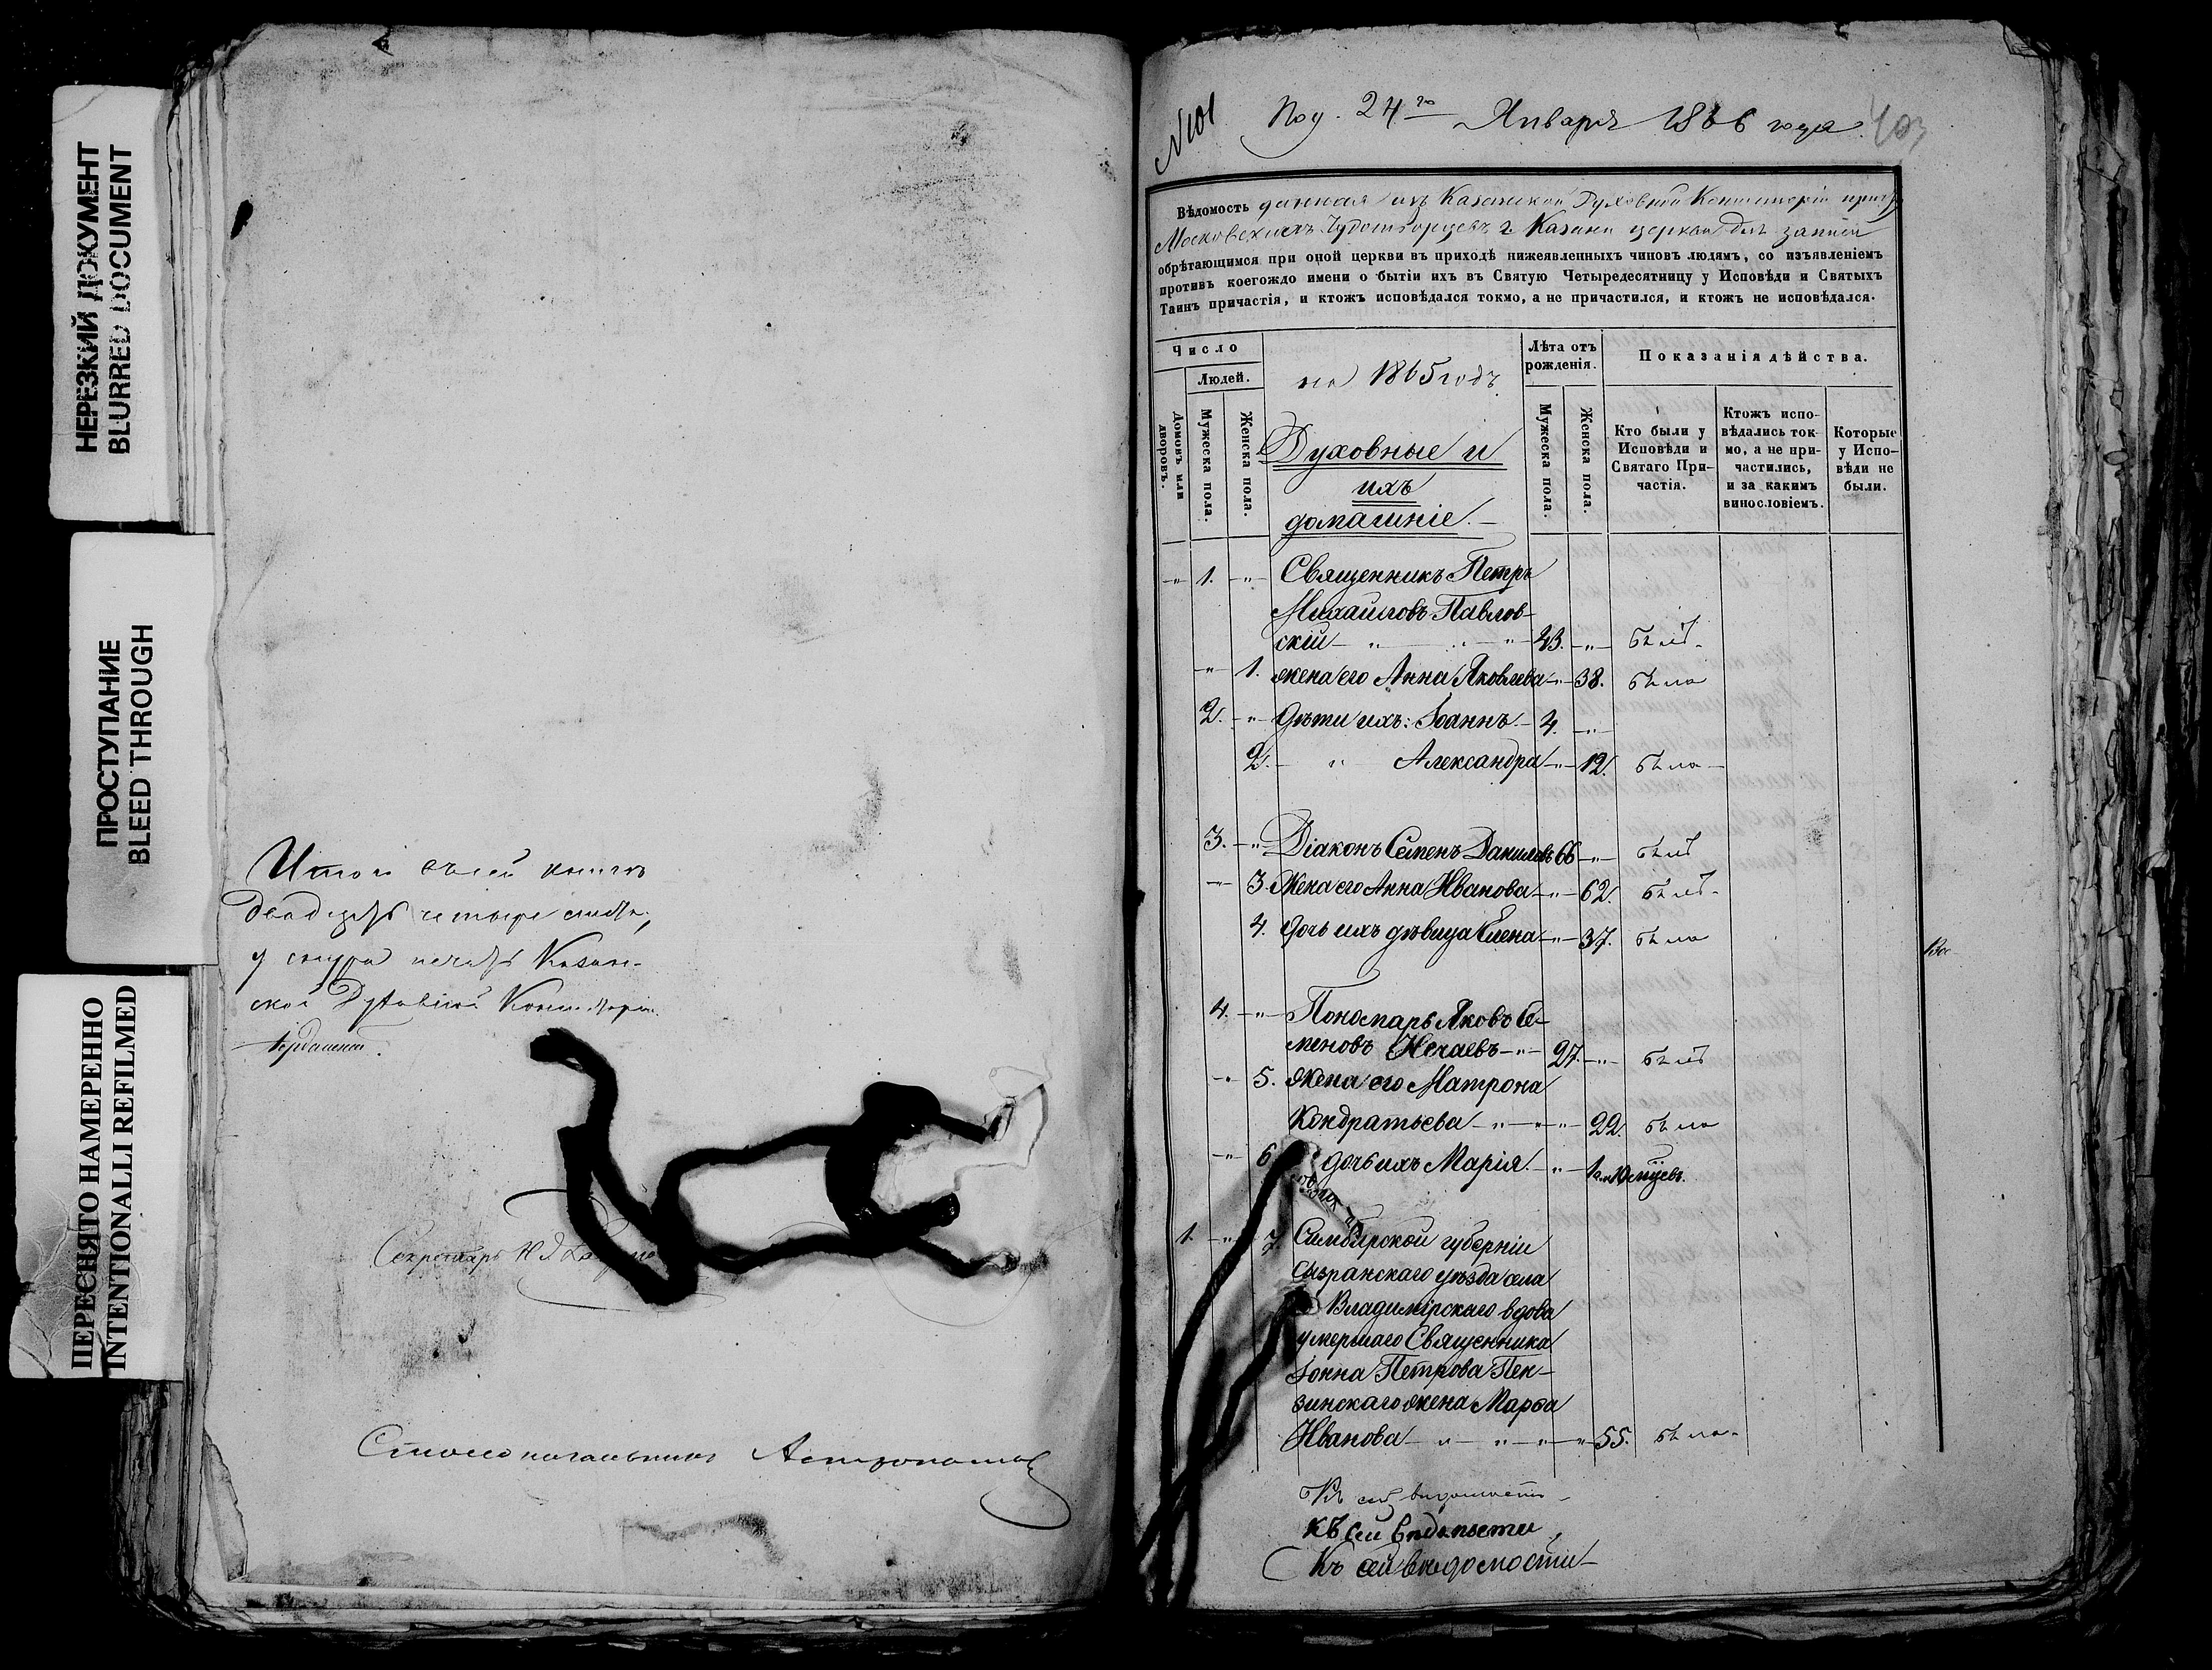 НЕРЕЗКИЙ ДОКУМЕНТ
BLURRED DOCUMENT
ПРОСТУПАНИЕ
BLEED THROUGH
ПЕРЕСНЯТО НАМЕРЕННО
INTENTIONALLI REFILMED
Итого въ сей книгѣ
двадцать четыре листа,
у снура печать Казан-
ской Духовной Консисторіи
Секретарь
Столоначальникъ
№101
Под. 24го Января 1866 года.
403
Вѣдомость данная изъ Казанской Духовной Консисторіи
Московскихъ Чудотворцевъ г. Казани церкви для записи
обрѣтающимся при оной церкви въ приходѣ нижеявленныхъ чиновъ людямъ, со изъявленіемъ
противъ коегождо имени о бытіи ихъ въ Святую Четыредесятницу у Исповѣди и Святыхъ
Таинъ причастія, и ктожъ исповѣдался токмо, а не причастился, и ктожъ не исповѣдался.
Число
Людей.
Домовъ или дворовъ.
Мужеска пола.
Женска пола.
на 1865 годъ
Духовные и
ихъ
домашніе.
Лѣта отъ рожденія.
Мужеска пола.
Женска пола.
Показанія дѣйства.
Кто были у Исповѣди и Святаго Причастія.
Ктожъ исповѣдались токмо, а не причастились, и за какимъ винословіемъ.
Которые у Исповѣди не были.
-"- 1. -"- Священникъ Петръ
Михайловъ Павлов-
скій - " - " - " - 43. -"- былъ
-"- 1. жена его Анна Яковлева -"- 38. была
2. -"- Дѣти ихъ: Іоаннъ - 4. -"-
2. - " Александра -"- 12. была
3. -"- Діаконъ Семенъ Даниловъ 66 -"- былъ
-"- 3. Жена его Анна Иванова -"- 62. былъ
4. Дочь ихъ дѣвица Елена -"- 37. была
4. -"- Пономарь Яковъ Се-
меновъ Нечаевъ -"- 27. -"- былъ
-"- 5. Жена его Матрона
Кондратьева -"-"- 22. была
-"- 6 дочь ихъ Марія. -"- 1
1. -"- 7 Симбирской губерніи
Сызранскаго уѣзда села
Владимірскаго вдова
умершаго Священника
Іоанна Петрова Пен-
зинскаго жена Марѳа
Иванова - " - " - " - " 55. была
Къ сей вѣдомости
Къ сей вѣдомости
Къ сей вѣдомости